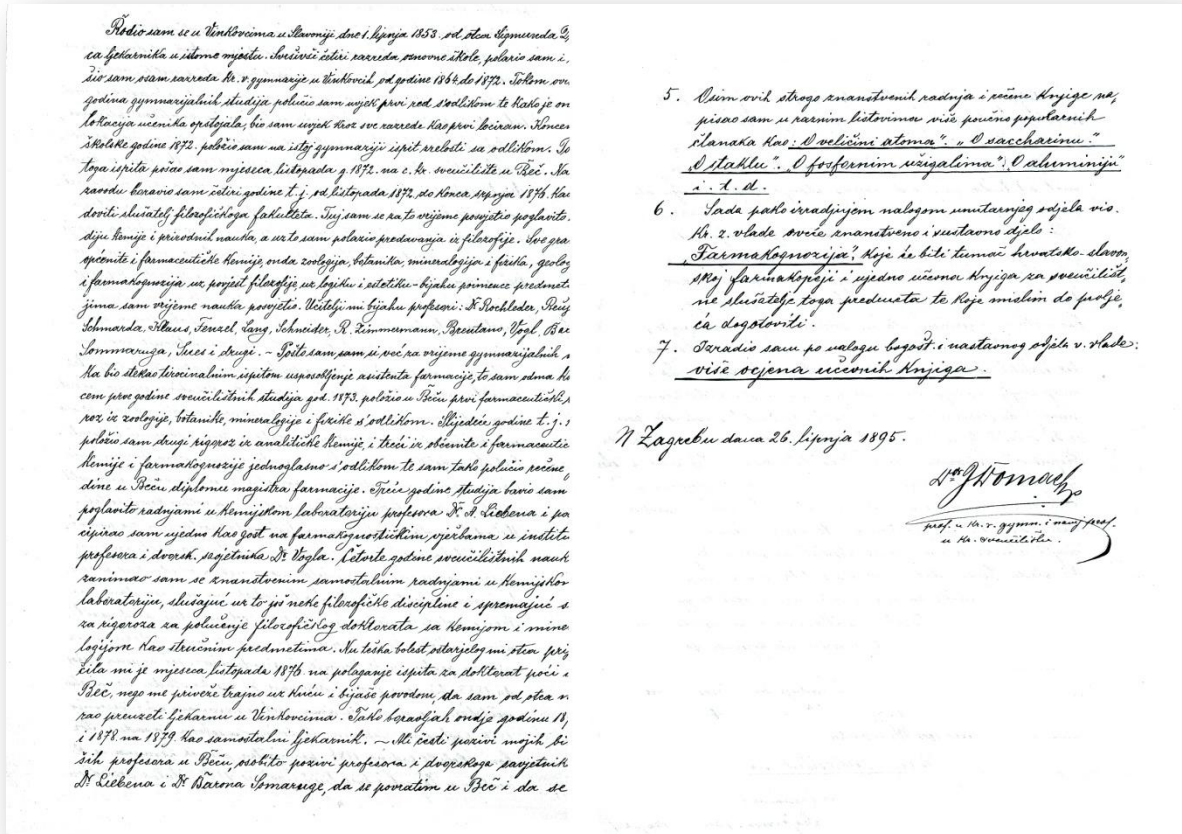 Rodio sam se u Vinkovcima u Slavoniji dne 1. lipnja 1853. od otca Sigmunda D
ca ljekarnika u istome mjestu. Svršivši četiri razreda osnovne škole, polazio sam i
šio sam osam razreda kr. v. gymnazije u Vinkovcih od godine 1864. do 1872. Tokom ov
godina gymnazijalnih studija polučio sam uvjek prvi red s'odlikom te kako je on
lokacija učenika opstojala, bio sam uvjek kroz sve razrede kao prvi lociran. Koncem
školske godine 1872. položio sam na istoj gymnaziji ispit zrelosti sa odlikom.
toga ispita pošao sam mjeseca listopada g. 1872. na c. kr. sveučilište u Beč. Na
zavodu boravio sam četiri godine t. j. od listopada 1872. do konca srpnja 1876. kao
doviti slušatelj filozofičkoga fakulteta. Tuj sam se za to vrijeme posvjetio poglavito
diju kemije i prirodnih nauka, a uz to sam polazio predavanja iz filozofije. Sve gra
općenite i farmaceutičke kemije, onda zoologija, botanika, mineralogija i fizika, geolog
i farmakognozija uz povjest filozofije uz logiku i estetiku - bijahu poimence predmet
jima sam vrijeme nauka posvjetio. Učitelji mi bijahu profesori: Dr. Rochleder, Reus
Schmarda, Klaus, Fenzel, Lang, Schneider, R. Zimmermann, Brentano, Vogl, Bar
Sommaruga, Sues i drugi. - Pošto sam sam si već za vrijeme gymnazijalnih
ka bio stekao tirocinalnim ispitom usposobljenje asistenta farmacije, to sam odma k
cem prve godine sveučilištnih studija god. 1873. položio u Beču prvi farmaceutički
roz iz zoologije, botanike, mineralogije i fizike s'odlikom. Slijedeće godine t. j.
položio sam drugi rigoroz iz analitičke kemije, i treći iz obćenite i farmaceutič
kemije i farmakognozije jednoglasno s'odlikom te sam tako polučio rečene
dine u Beču diplomu magistra farmacije. Treće godine studija bavio sam
poglavito radnjami u kemijskom laboratoriju profesora Dr. A. Liebena i pa
cipirao sam ujedno kao gost na farmakognostičkim vježbama u institu
profesora i dvorsk. savjetnika Dr. Vogla. Četvrte godine sveučilištnih nauk
zanimao sam se znanstvenim samostalnim radnjami u kemijskom
laboratoriju, slušajuć uz to još neke filozofičke discipline i spremajuć s
za rigoroza za polučenje filozofičkog doktorata sa kemijom i mine
logijom kao stručnim predmetima. Nu teška bolest ostarjelog mi otca prie
čila mi je mjeseca listopada 1876. na polaganje ispita za doktorat poći u
Beč, nego me priveže trajno uz kuću i bijaše povodom, da sam od otca m
rao preuzeti ljekarnu u Vinkovcima. Tako boravljah ondje godinu 18
i 1878. na 1879. kao samostalni ljekarnik. - Mi česti pozivi mojih bi
ših profesora u Beču, osobito pozivi profesora i dvorskoga savjetnik
Dr. Liebena i Dr. Barona Somaruge, da se povratim u Beč i da se
5. Osim ovih strogo znanstvenih radnja i rečene knjige na,
pisao sam u raznim listovima više poučno popularnih
članaka kao: „O veličini atoma“. „O saccharinu“.
„O staklu“. „O fosfornim užigalima“. „O aluminiju“
i. t. d.
6. Sada pako izradjujem nalogom unutarnjeg odjela vis.
kr. z. vlade sveće znanstveno i sustavno djelo:
„Farmakognozija“, koje će biti tumač hrvatsko-slavon,
skoj farmakopeji i ujedno učevna knjiga za sveučilišt,
ne slušatelje toga predmeta te koje mislim do prolje,
ća dogotoviti.
7. Izradio sam po nalogu bogošt. i nastavnog odjela v. vlade:
više ocjena učevnih knjiga.
U Zagrebu dana 26. lipnja 1895.
Dr. G Domac
prof. u kr. v. gymn. i namj. prof.
u kr. sveučilištu.